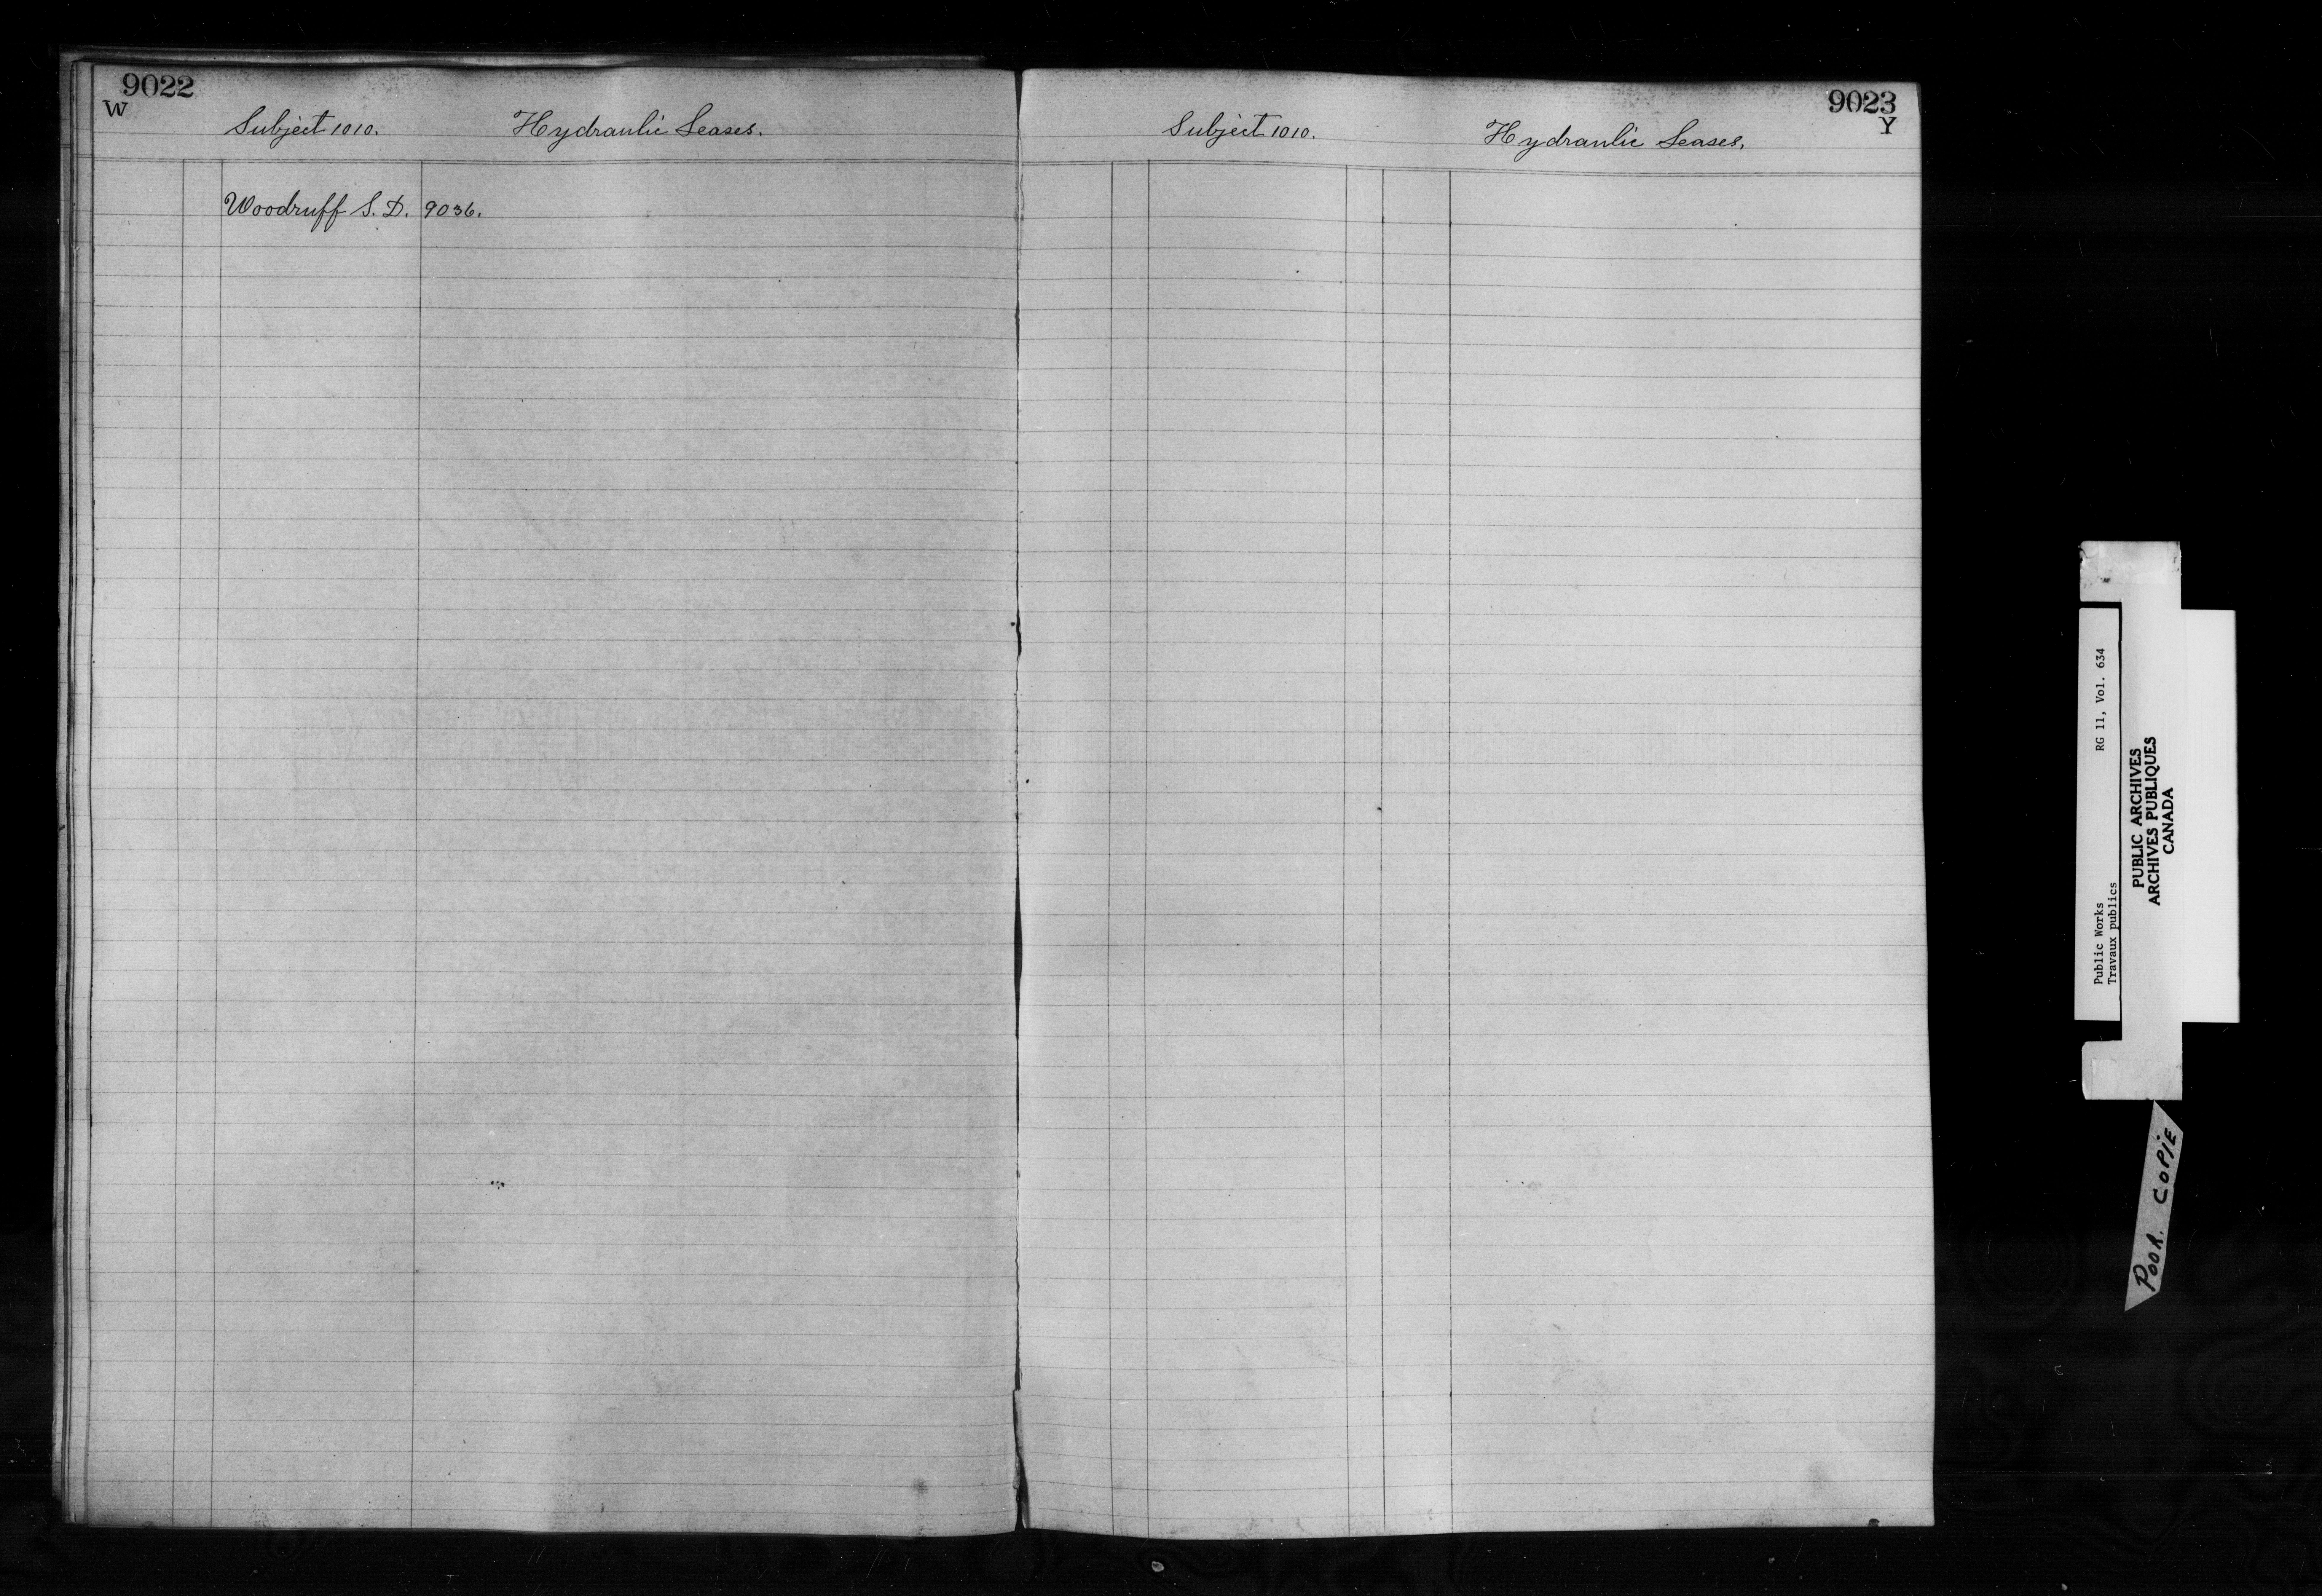 9022
W
Subject 1010. Hydraulic Leases.
Woodruff S. D. 9036.
9023
Y
Subject 1010. Hydraulic Leases.
Public Works RG 11, Vol. 634
Travaux publics
PUBLIC ARCHIVES
ARCHIVES PUBLIQUES
CANADA
POOR. COPIE